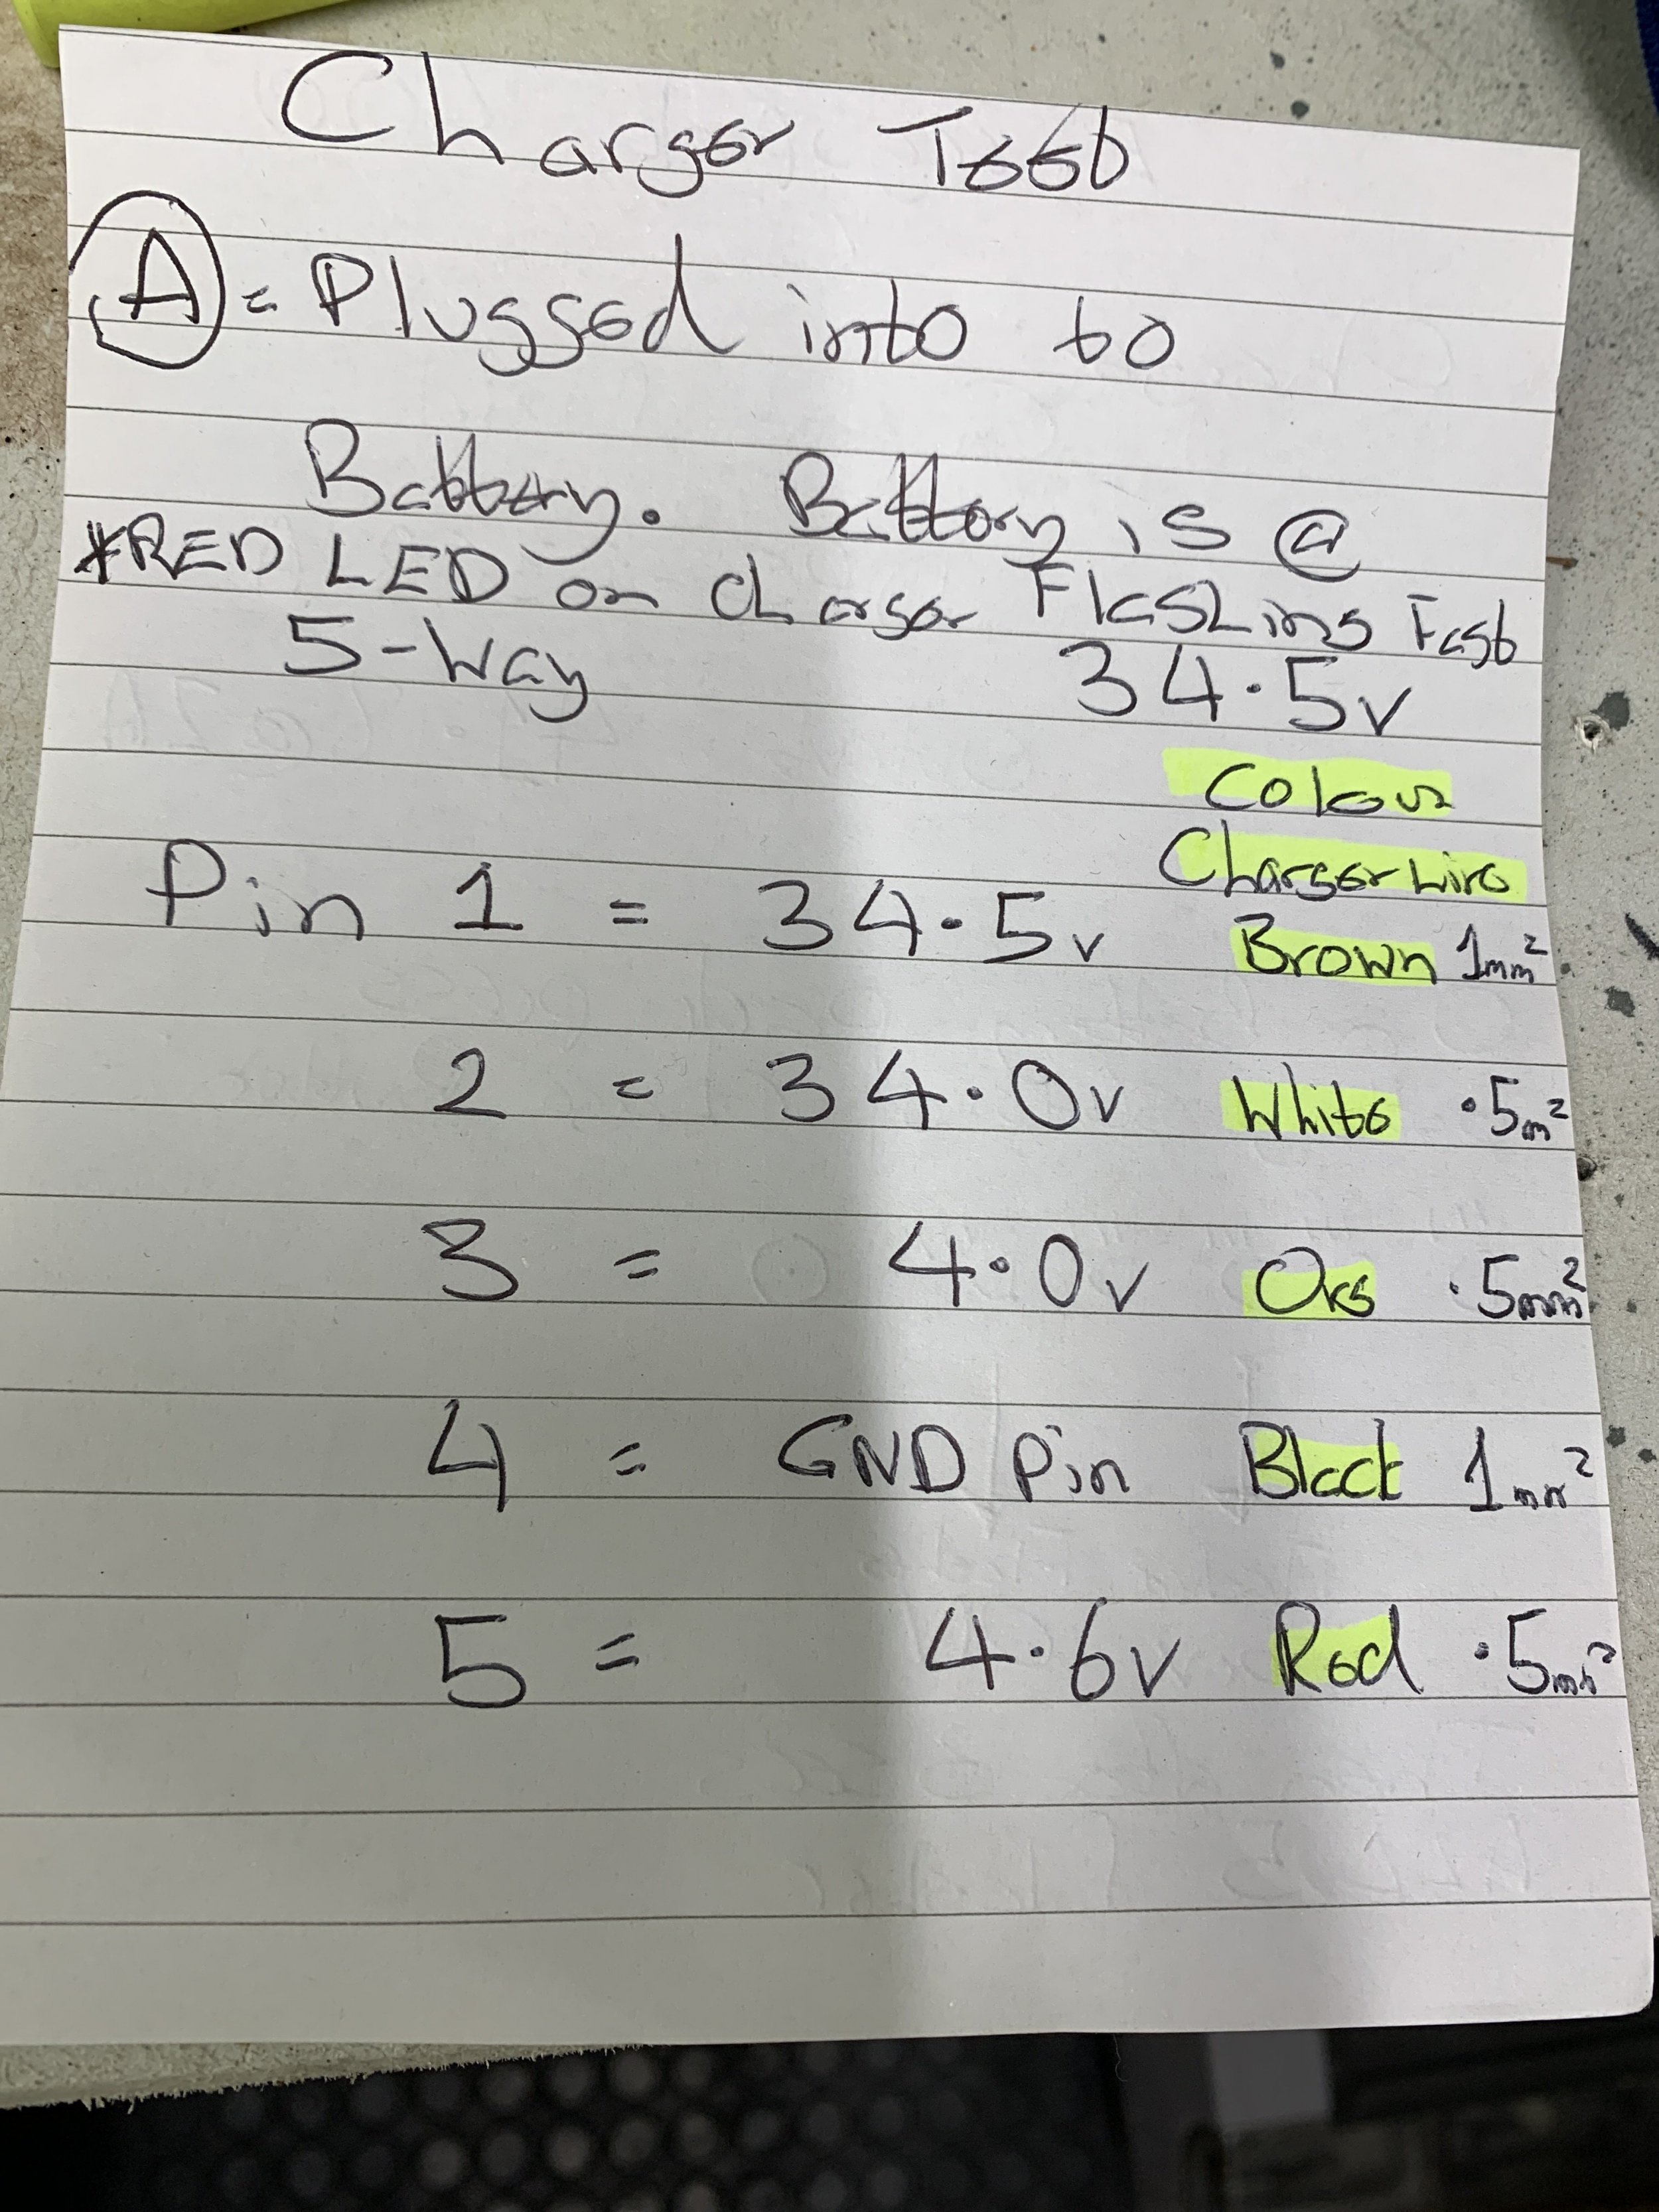 Charger Test
A = Plugged into to
Battery. Battery is @
*RED LED on charger Flashing Fast
5-Way 34.5v
Colour
Charger wire
Pin 1 = 34.5v Brown 1mm²
2 = 34.0v White .5m²
3 = 4.0v Org .5mm²
4 = GND Pin Black 1mm²
5 = 4.6v Red .5mm²